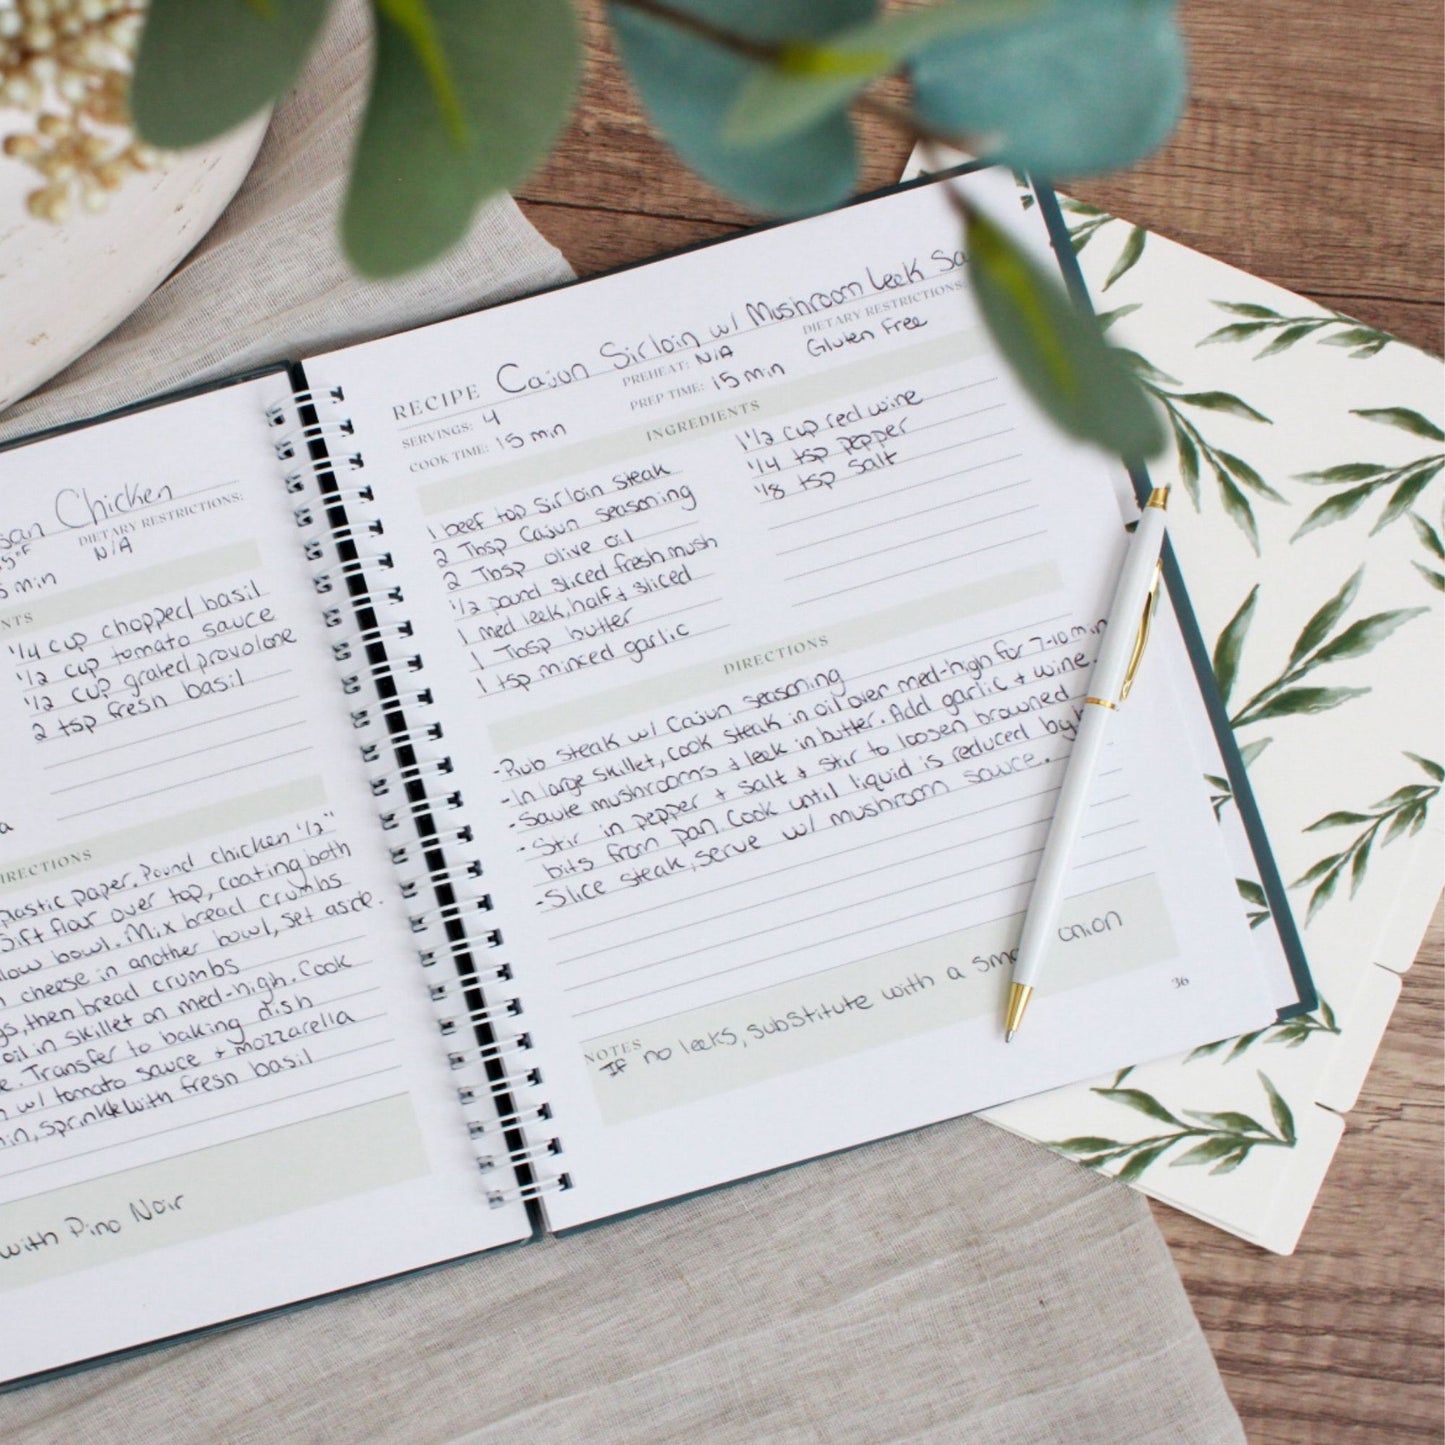 Chicken
DIETARY RESTRICTIONS:
min
N/A
1/4 cup chopped basil
1/2 cup tomato sauce
1/2 cup grated provolone
2 tsp fresh basil
plastic paper. Pound chicken 1/2"
Sift flour over top, coating both
bowl. Mix bread crumbs
cheese in another bowl, set aside.
then bread crumbs
oil in skillet on med-high. Cook
Transfer to baking dish
w/ tomato sauce + mozzarella
sprinkle with fresh basil
with Pino Noir
RECIPE Cajun Sirloin w/ Mushroom Leek
SERVINGS: 4
PREHEAT: N/A
DIETARY RESTRICTIONS:
COOK TIME: 15 min
PREP TIME: 15 min
Gluten Free
INGREDIENTS
1 beef top sirloin steak
2 Tbsp Cajun seasoning
2 Tbsp olive oil
1/2 pound sliced fresh mush
1 med leek, half + sliced
1 Tbsp butter
1 tsp minced garlic
1 1/2 cup red wine
1/4 tsp pepper
1/8 tsp salt
DIRECTIONS
-Rub steak w/ Cajun seasoning
-In large skillet, cook steak in oil over med-high for 7-10 min
-Saute mushrooms + leek in butter. Add garlic + wine.
-Stir in pepper + salt + stir to loosen browned
bits from pan. Cook until liquid is reduced by
-Slice steak, serve w/ mushroom sauce.
NOTES
If no leeks, substitute with a onion
36